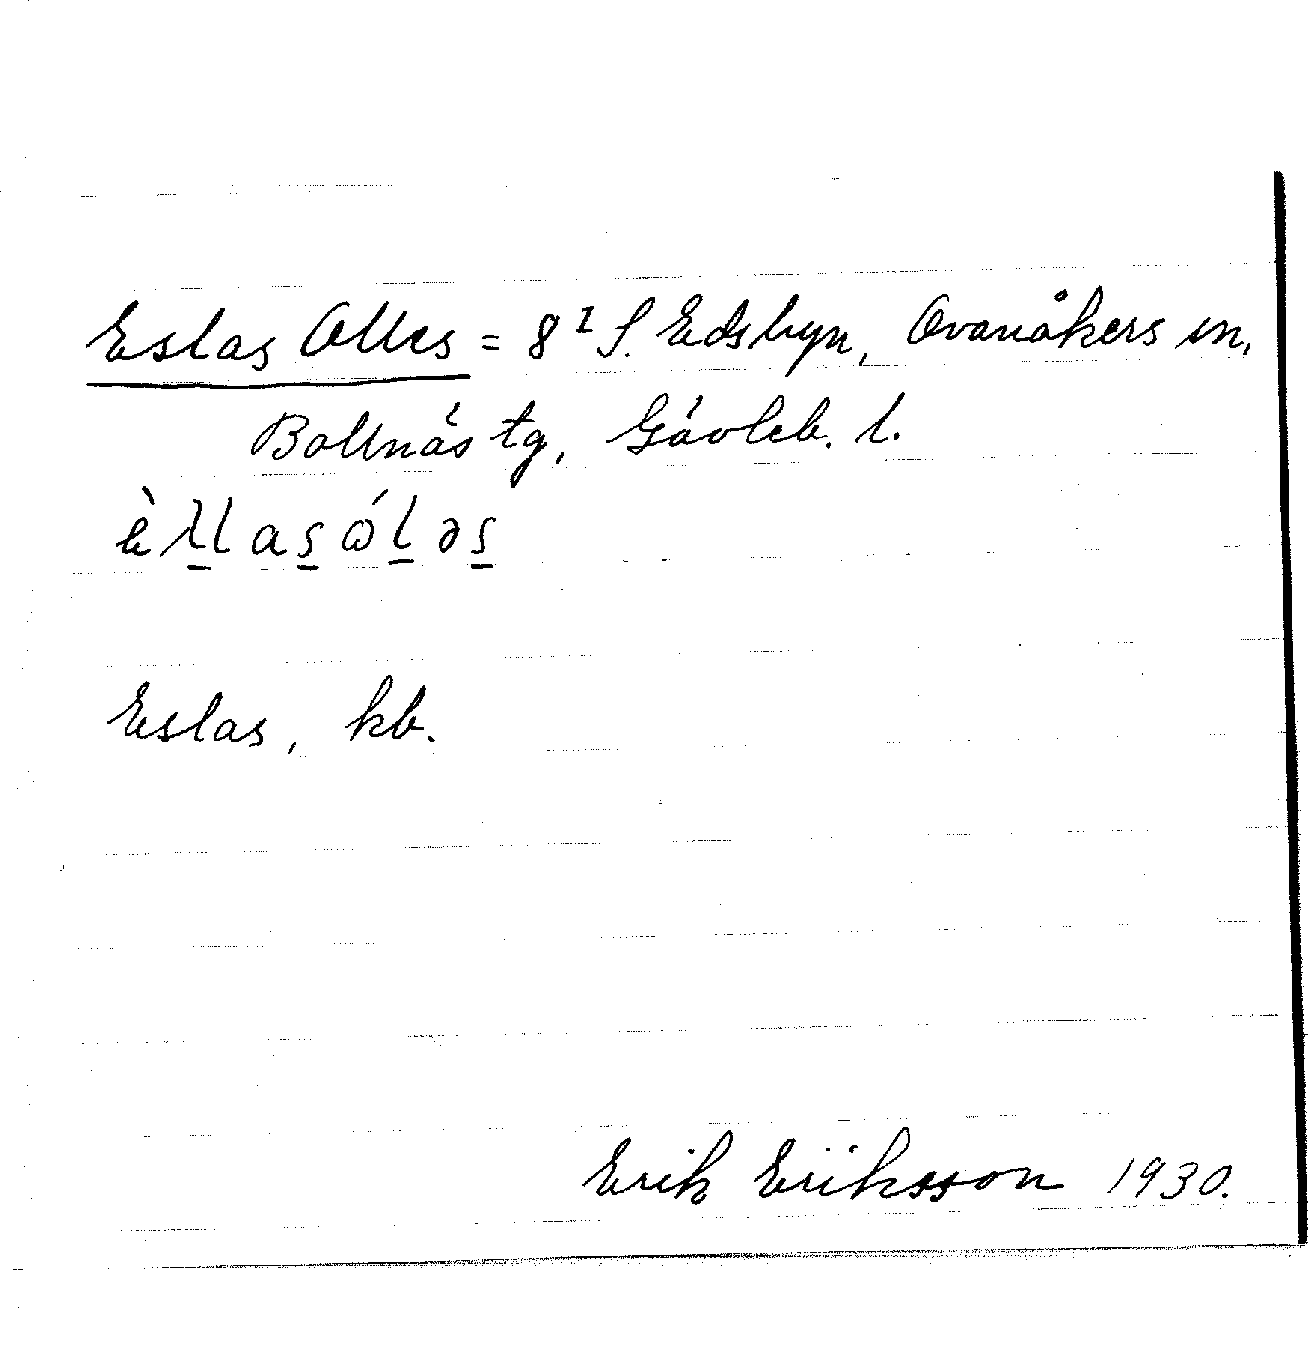 Eslas Olles = 8¹ S. Edsbyn, Ovanåkers sn,
Bollnäs tg, Gävleb. l.
Eslas, kb.
Erik Eriksson 1930.